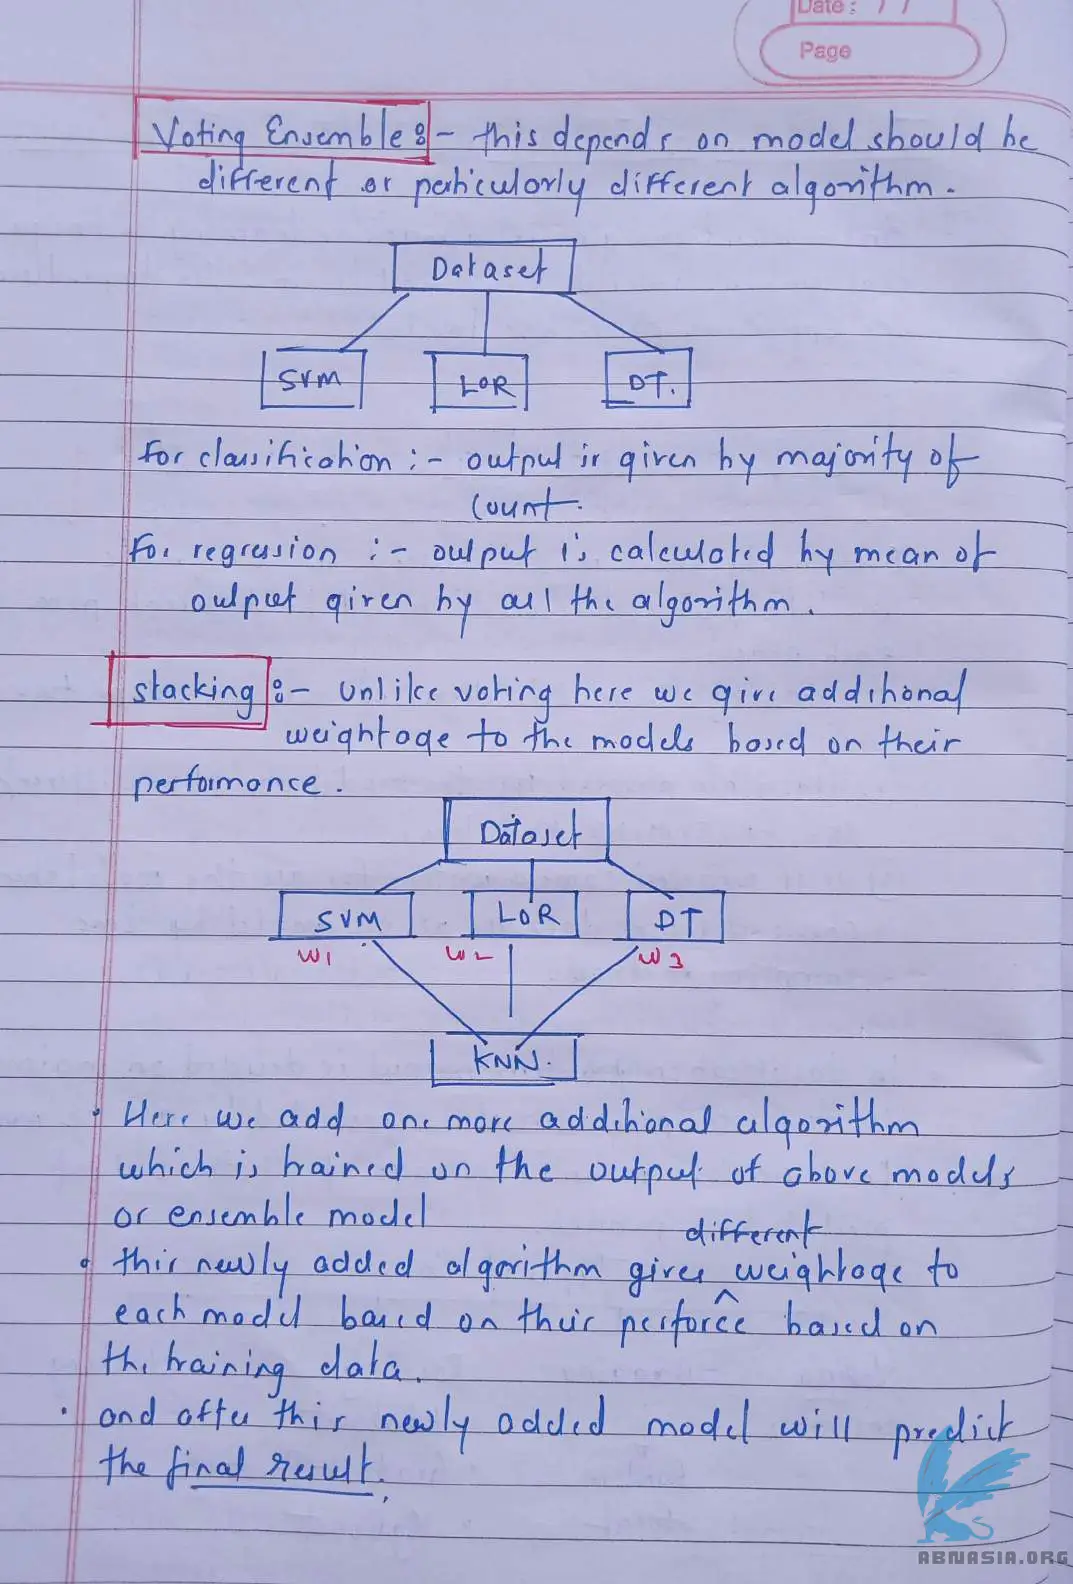 Date : / /
Page
Voting Ensemble :- this depends on model should be
different or perticulorly different algorithm.
Dataset
SVM LOR DT.
For classification :- output is given by majority of
count.
For regression :- output is calculated by mean of
output given by all the algorithm.
stacking :- unlike voting here we give additional
weightage to the models based on their
performance.
Dataset
SVM LOR DT
W1 W2 W3
KNN.
• Here we add one more additional algorithm
which is trained on the output of above models
or ensemble model
different
• this newly added algorithm gives weightage to
each model based on their perforce based on
the training data.
• and after this newly added model will predict
the final result.
ABNASIA.ORG